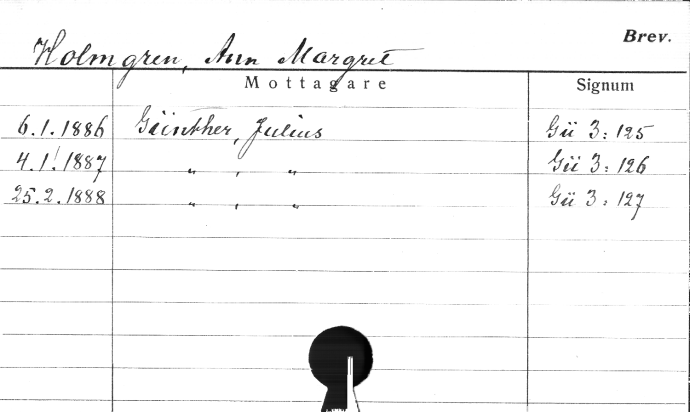 Brev.
Holmgren, Ann Margret
Mottagare Signum
6.1.1886 Günther, Julius Gü 3:125
4.1.1887 " , " Gü 3:126
25.2.1888 " , " Gü 3:127